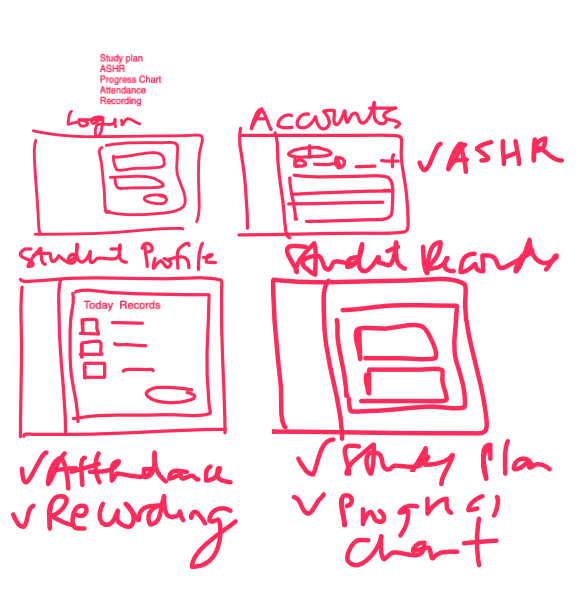 Study plan
ASHR
Progress Chart
Attendance
Recording
Login
Accounts
✓ASHR
Student Profile
Student Records
Today Records
✓Attendance
✓Recording
✓Study Plan
✓Progress
Chart